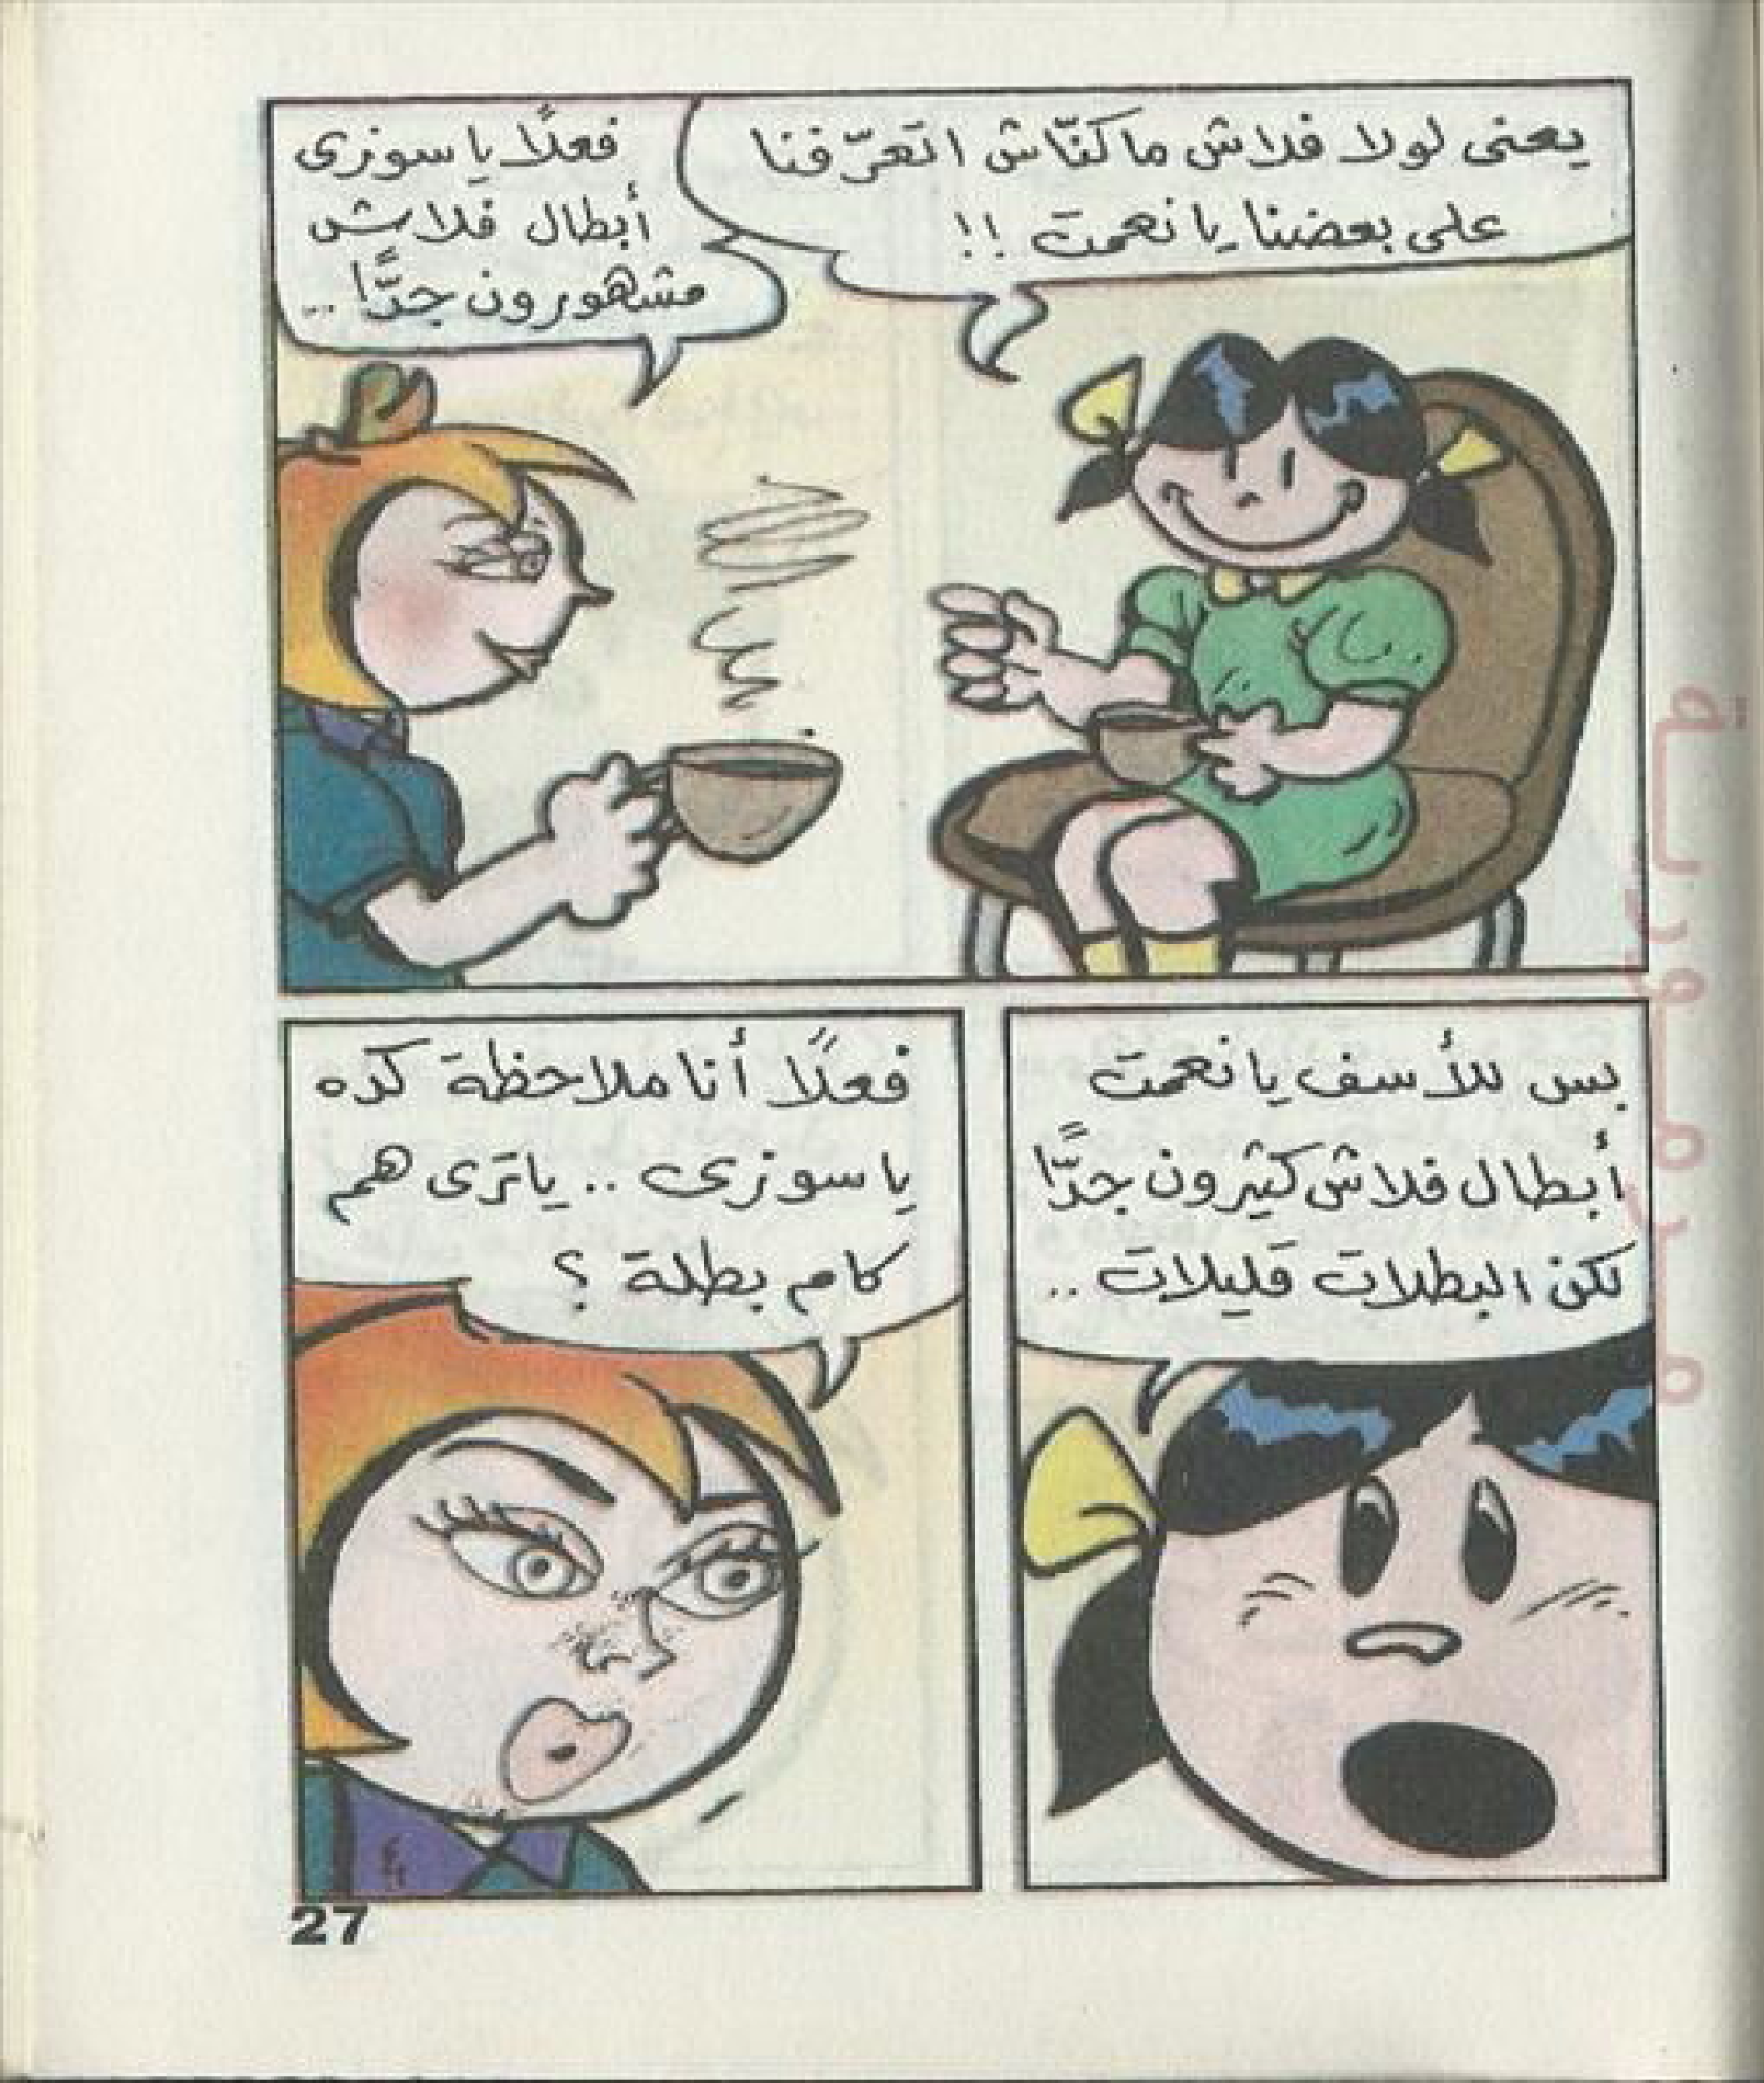 يعنى لولا فلاش ماكنّاش اتعرّفنا
على بعضنا يا نعمت !!
فعلًا يا سوزى
أبطال فلاش
مشهورون جدًّا ..
بس للأسف يا نعمت
أبطال فلاش كثيرون جدًّا
لكن البطلات قليلات ..
فعلًا أنا ملاحظة كده
يا سوزى .. ياترى هم
كام بطلة ؟
27
مرمورية